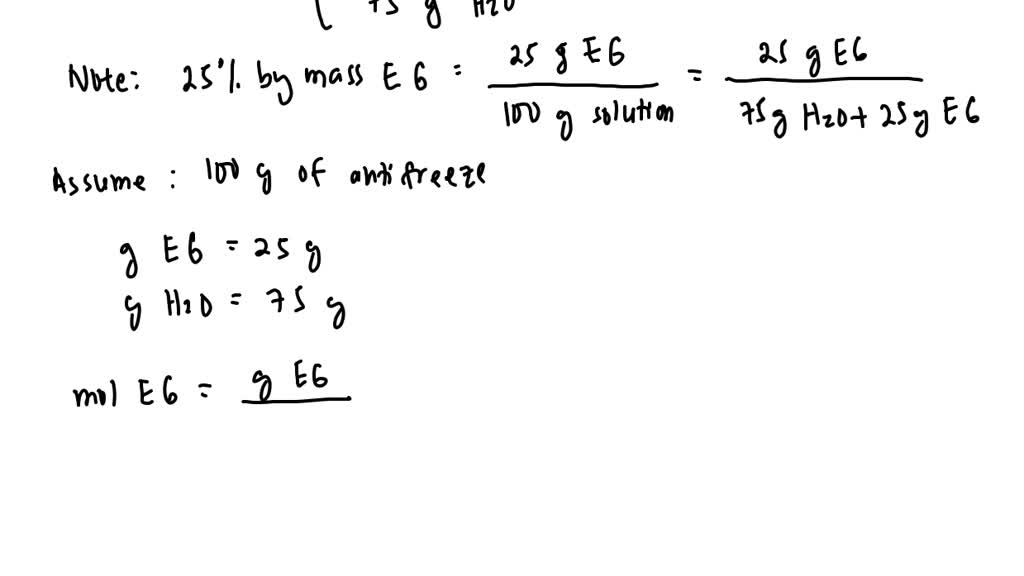 75 g H2O
Note: 25% by mass EG = 25 g EG / 100 g solution = 25 g EG / 75g H2O + 25g EG
Assume: 100 g of antifreeze
g EG = 25 g
g H2O = 75 g
mol EG = g EG